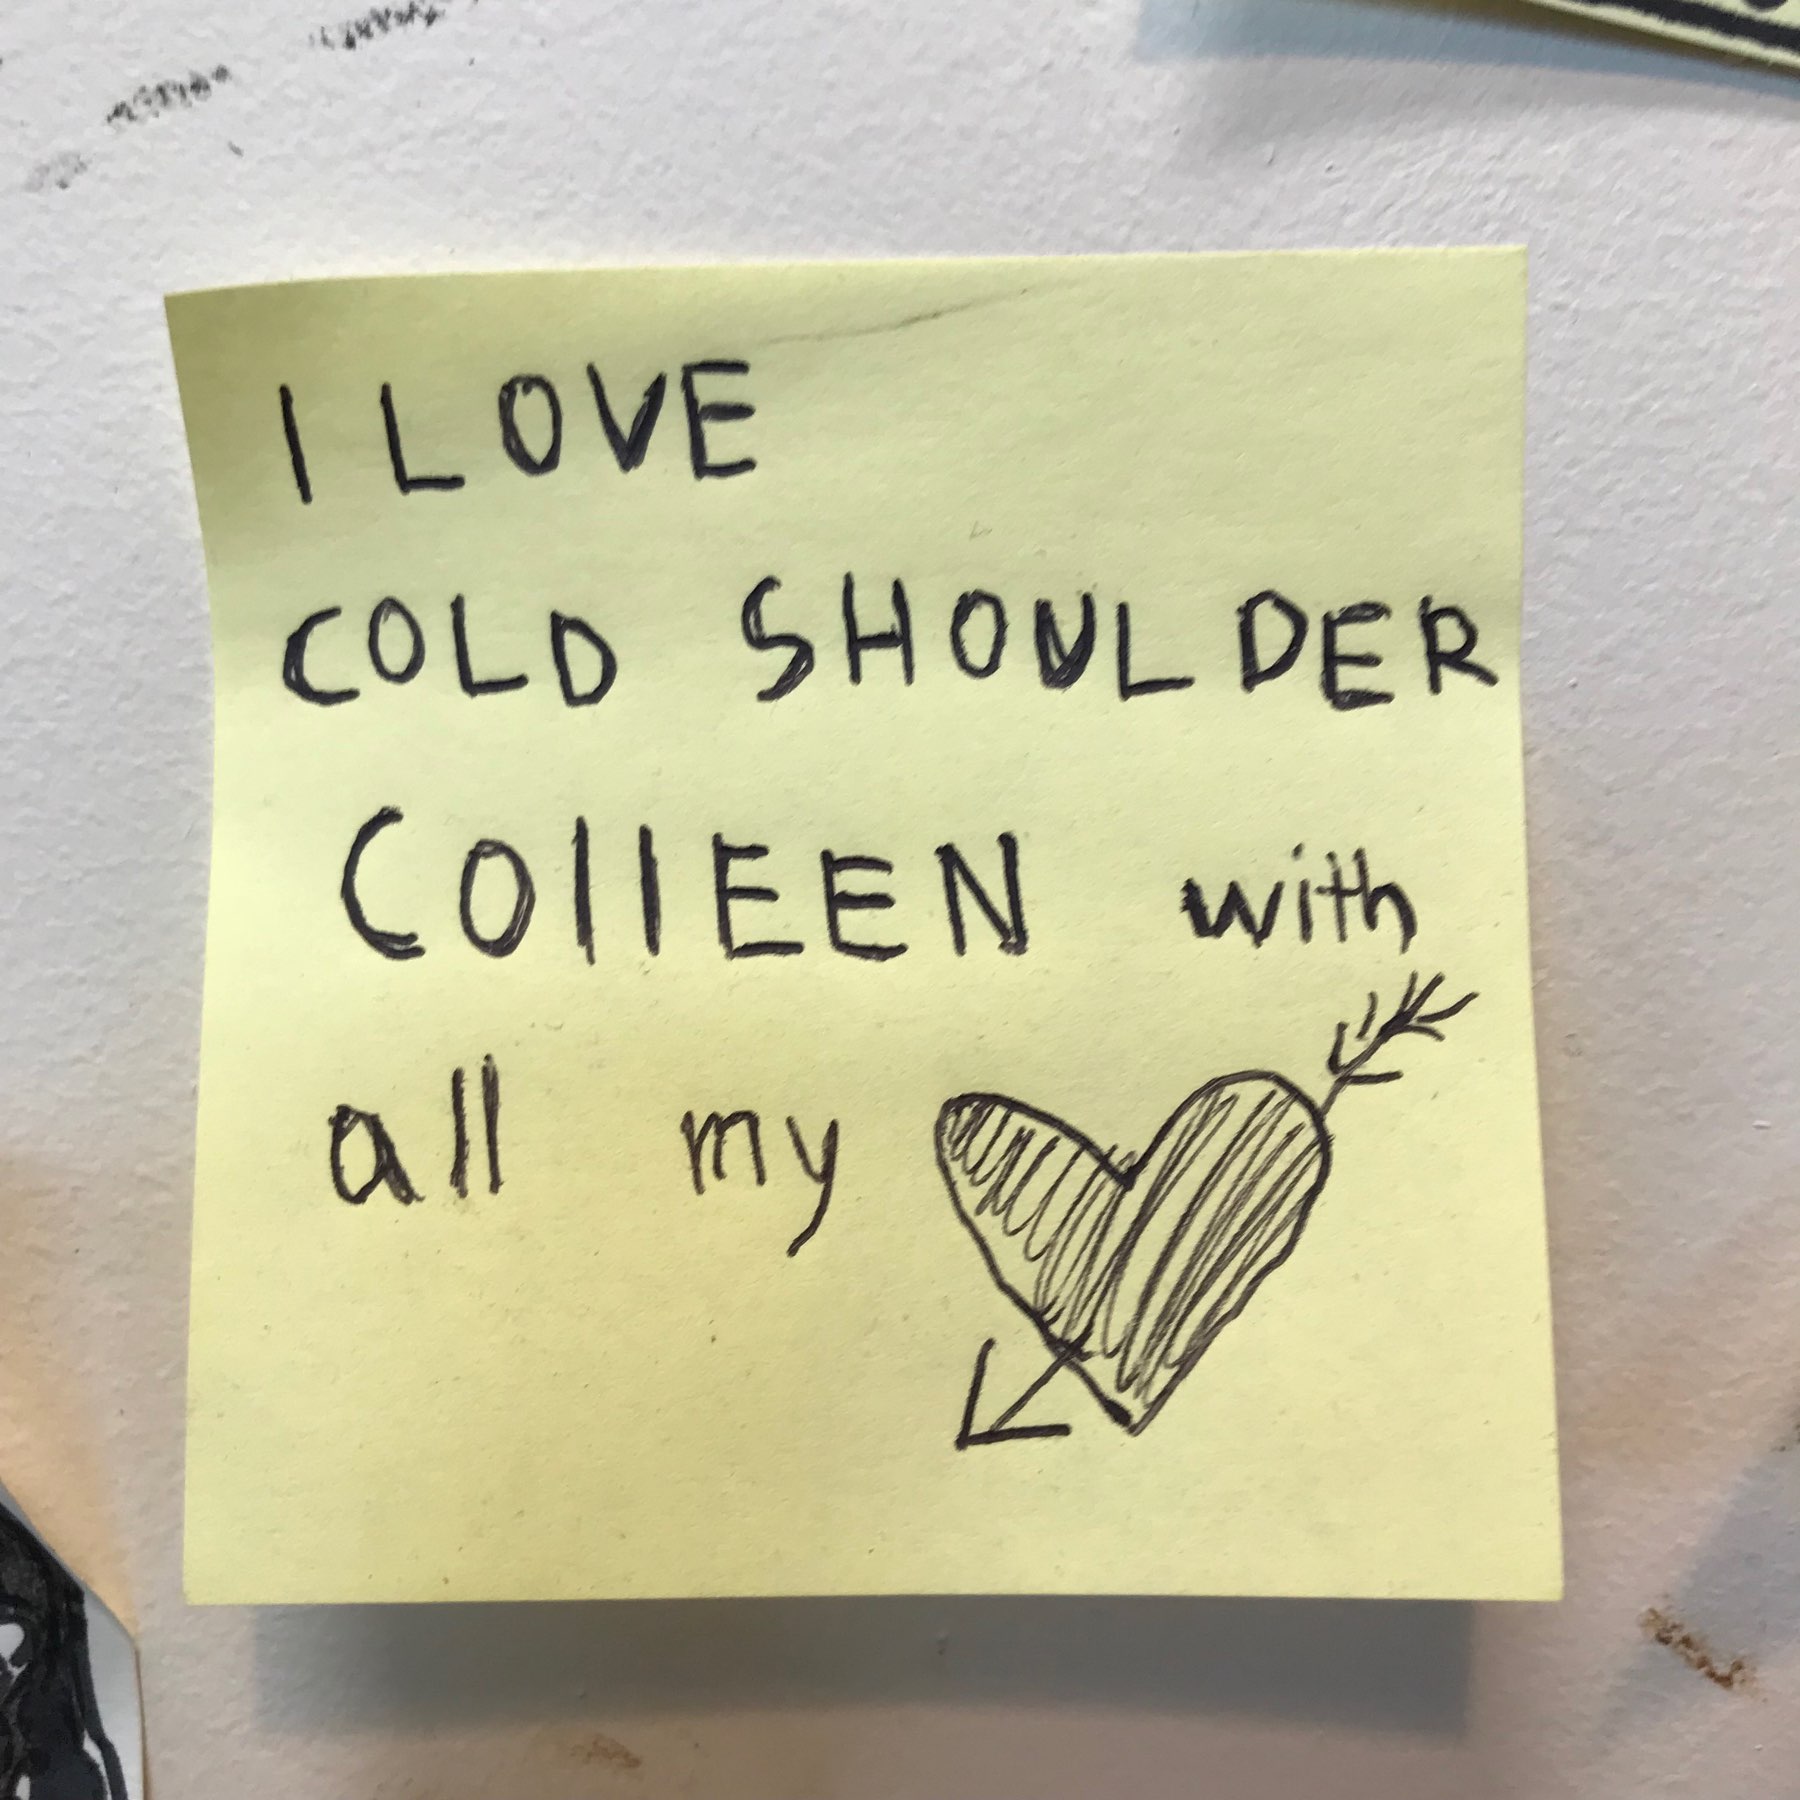 I LOVE
COLD SHOULDER
COllEEN with
all my